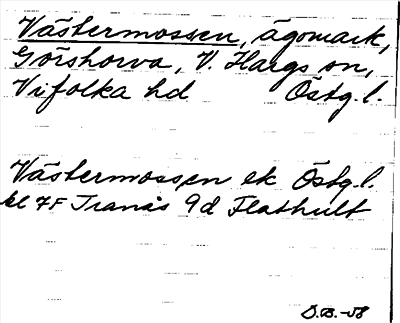 Västermossen, ägomark,
Görshorva, V. Hargs sn,
Vifolka hd Östg.l.
Västermossen ek Östg.l.
bl 7F Tranås 9d Flathult
S.B. -58